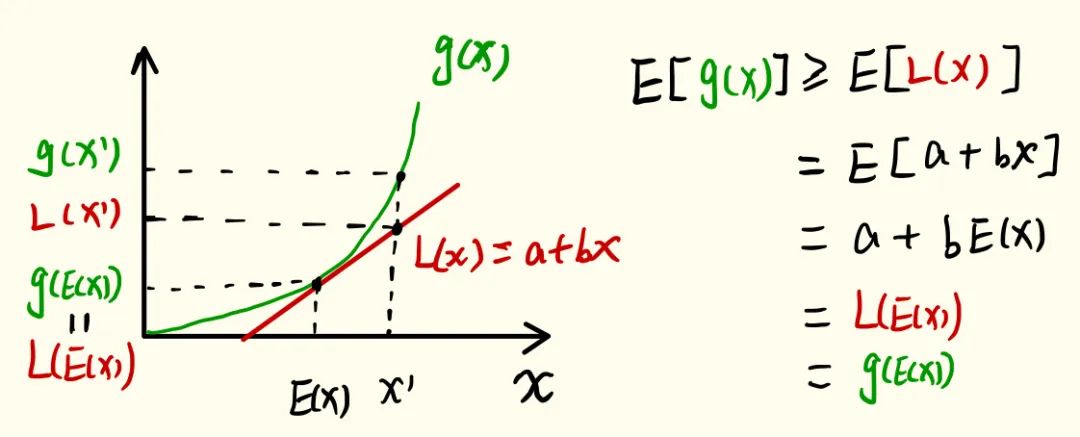 g(x)
g(x')
L(x')
g(E(x))
=
L(E(x))
L(x) = a+bx
E(x)
x'
x
E[g(x)] ≥ E[L(x)]
= E[a+bx]
= a + bE(x)
= L(E(x))
= g(E(x))